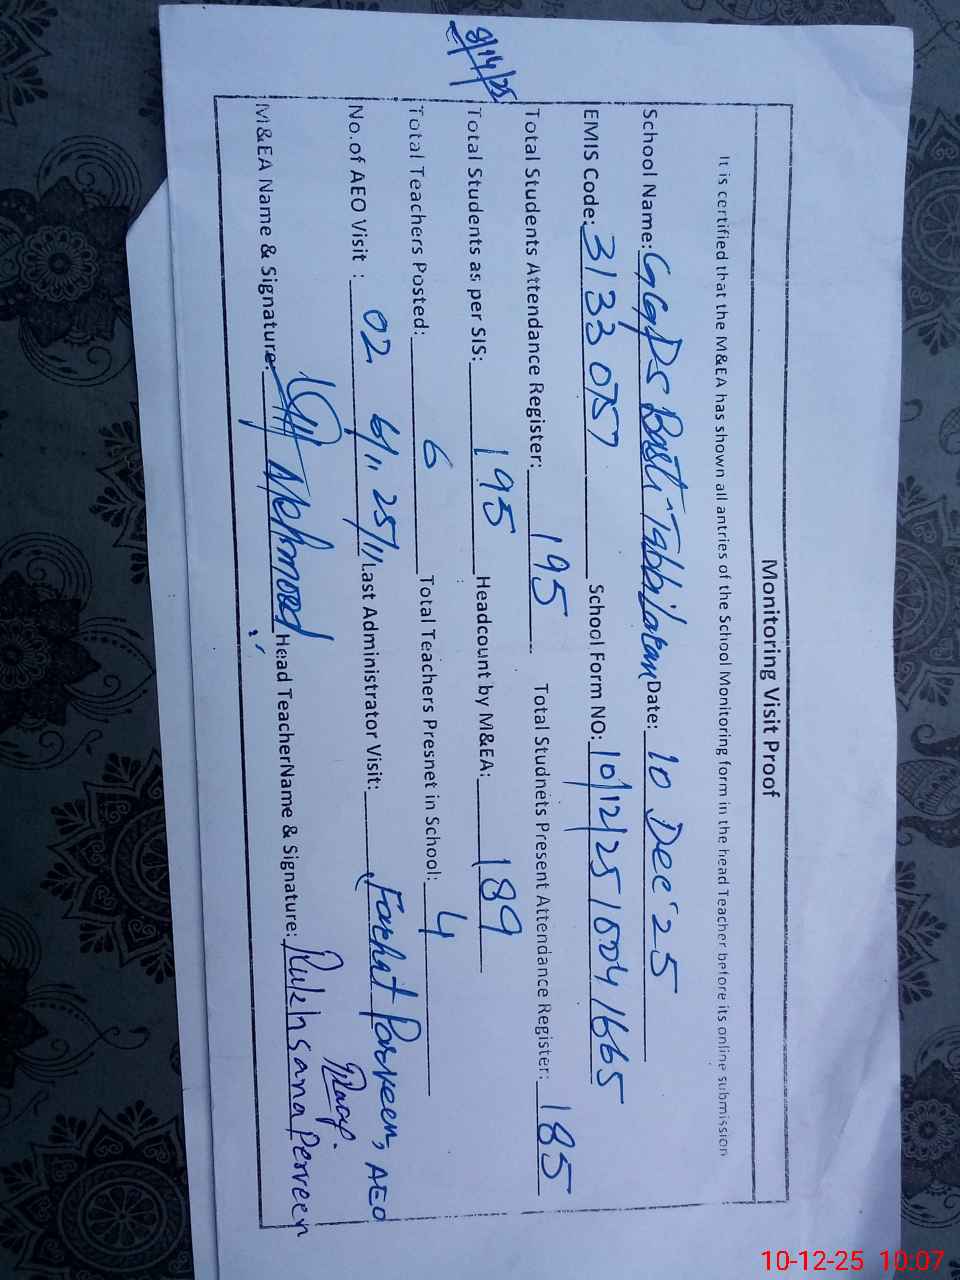 Monitoring Visit Proof
It is certified that the M&EA has shown all antries of the School Monitoring form in the head Teacher before its online submission
School Name: GGPS Basti Tabbilatan Date: 10 Dec'25
EMIS Code: 31330757 School Form NO: 10/12/25/004/1665
Total Students Attendance Register: 195 Total Studnets Present Attendance Register: 185
8/14/25
Total Students as per SIS: 195 Headcount by M&EA: 189
Total Teachers Posted: 6 Total Teachers Presnet in School: 4
No.of AEO Visit : 02 6/11 25/11 Last Administrator Visit: Farhat Parveen, AEO
M&EA Name & Signature: Mehmood Head TeacherName & Signature: Rukhsana Perveen
10-12-25 10:07